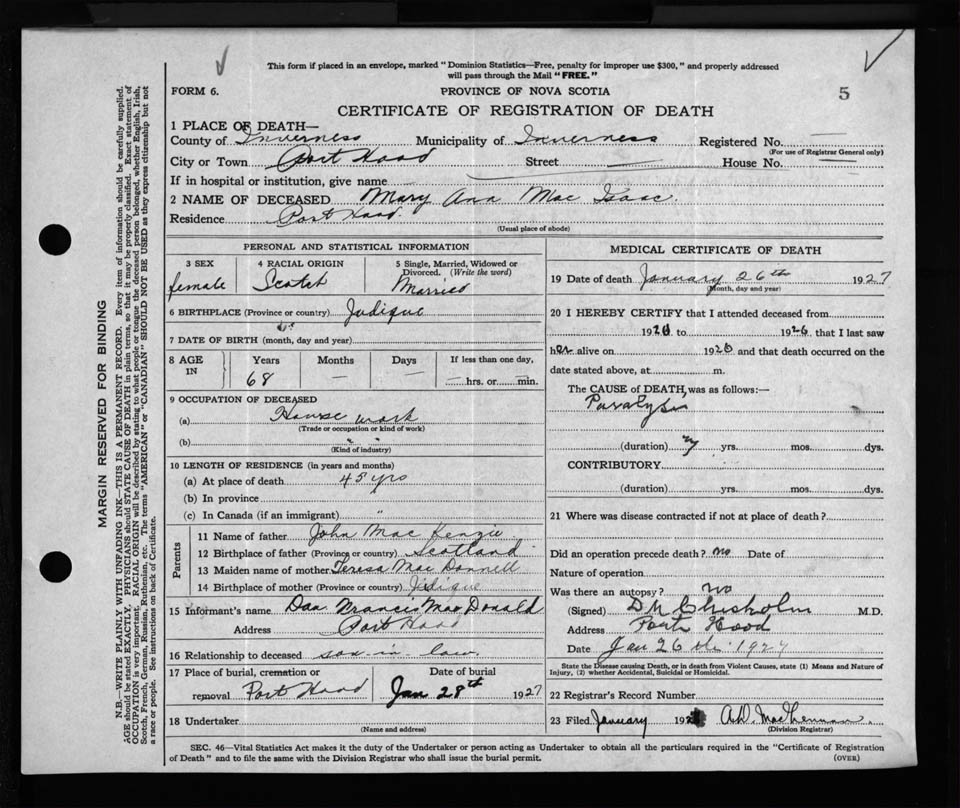 This form if placed in an envelope, marked "Dominion Statistics—Free, penalty for improper use $300," and properly addressed
will pass through the Mail "FREE."
FORM 6.
PROVINCE OF NOVA SCOTIA
5
CERTIFICATE OF REGISTRATION OF DEATH
1 PLACE OF DEATH—
County of Inverness Municipality of Inverness Registered No. —
(For use of Registrar General only)
City or Town Port Hood Street — House No. —
If in hospital or institution, give name
2 NAME OF DECEASED Mary Ann Mac Isaac.
Residence Port Hood.
(Usual place of abode)
PERSONAL AND STATISTICAL INFORMATION
3 SEX 4 RACIAL ORIGIN 5 Single, Married, Widowed or
Divorced. (Write the word)
female Scotch Married
6 BIRTHPLACE (Province or country) Judique
7 DATE OF BIRTH (month, day and year)
8 AGE IN Years Months Days If less than one day,
68 — — hrs. or min.
9 OCCUPATION OF DECEASED
(a) House work
(Trade or occupation or kind of work)
(b) " "
(Kind of industry)
10 LENGTH OF RESIDENCE (in years and months)
(a) At place of death 45 yrs
(b) In province
(c) In Canada (if an immigrant) "
Parents
11 Name of father John Mac Kenzie
12 Birthplace of father (Province or country) Scotland
13 Maiden name of mother Teresa Mac Donnell
14 Birthplace of mother (Province or country) Judique
15 Informant's name Dan Francis Mac Donald
Address Port Hood
16 Relationship to deceased son-in-law.
17 Place of burial, cremation or Date of burial
removal Port Hood Jan 28th 1927
18 Undertaker
(Name and address)
MEDICAL CERTIFICATE OF DEATH
19 Date of death January 26th 1927
(Month, day and year)
20 I HEREBY CERTIFY that I attended deceased from
1926 to 1926 that I last saw
her alive on 1926 and that death occurred on the
date stated above, at m.
The CAUSE of DEATH, was as follows:—
Paralysis
(duration) yrs. mos. dys.
CONTRIBUTORY
(duration) yrs. mos. dys.
21 Where was disease contracted if not at place of death?
Did an operation precede death? no Date of
Nature of operation
Was there an autopsy? no
(Signed) D M Chisholm M.D.
Address Port Hood
Date Jan 26th 1927
State the Disease causing Death, or in death from Violent Causes, state (1) Means and Nature of
Injury, (2) whether Accidental, Suicidal or Homicidal.
22 Registrar's Record Number
23 Filed January 192 A.D. MacLennan.
(Division Registrar)
SEC. 46—Vital Statistics Act makes it the duty of the Undertaker or person acting as Undertaker to obtain all the particulars required in the "Certificate of Registration
of Death" and to file the same with the Division Registrar who shall issue the burial permit.
(OVER)
MARGIN RESERVED FOR BINDING
N.B.—WRITE PLAINLY WITH UNFADING INK—THIS IS A PERMANENT RECORD. Every item of information should be carefully supplied.
AGE should be stated EXACTLY. PHYSICIANS should STATE CAUSE OF DEATH in plain terms, so that it may be properly classified. Exact statement of
OCCUPATION is very important. RACIAL ORIGIN will be described by stating to what people or tongue the deceased person belonged, whether English, Irish,
Scotch, French, German, Russian, Ruthenian, etc. The terms "AMERICAN" or "CANADIAN" SHOULD NOT BE USED as they express citizenship but not
a race or people. See instructions on back of Certificate.